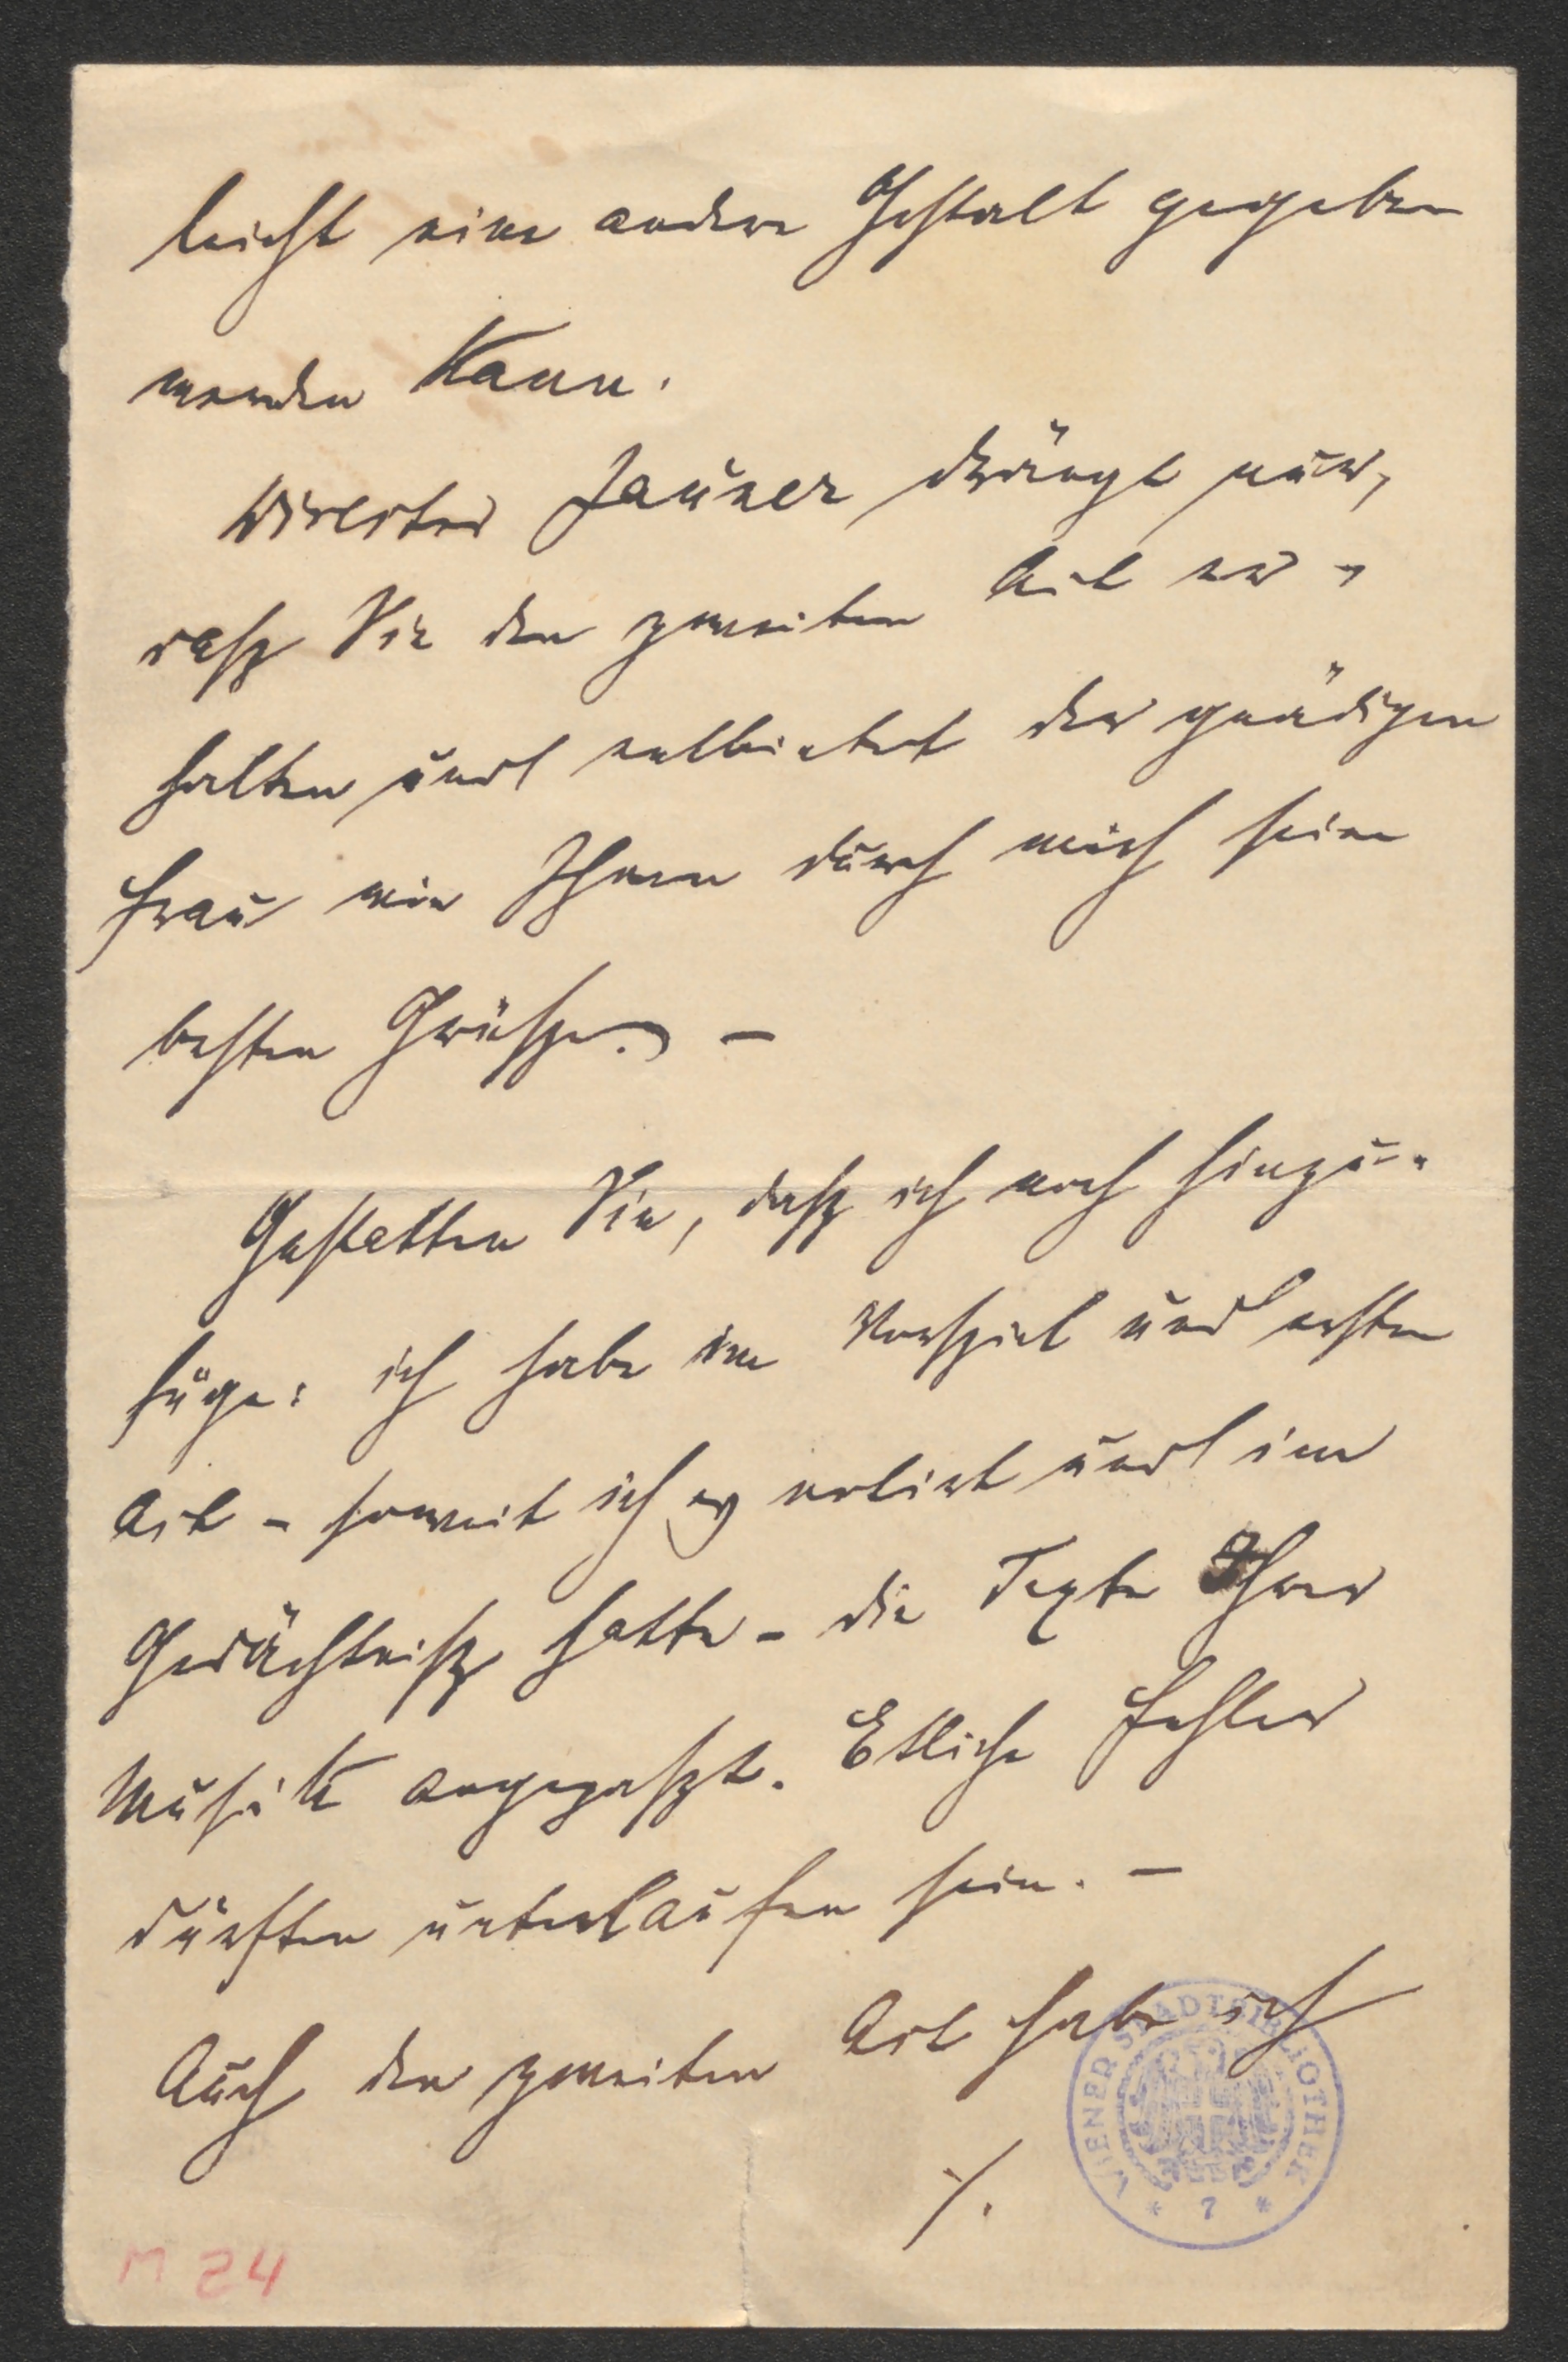 leicht eine andere Gestalt gegeben
werden kann.
Director Jauner drängt nur,
dasz Sie den zweiten Act er-
halten und entbietet der gnädigen
Frau wie Ihnen durch mich seine
besten Grüsze. –
Gestatten Sie, dasz ich noch hinzu-
füge: ich habe im Vorspiel und ersten
Act – soweit ich es notirt und im
Gedächtnisz hatte – die Texte Ihrer
Musik angepaszt. Etliche Fehler
dürften unterlaufen sein. –
Auch den zweiten Act habe ich
./.
WIENER STADTBIBLIOTHEK
* 7 *
M 24